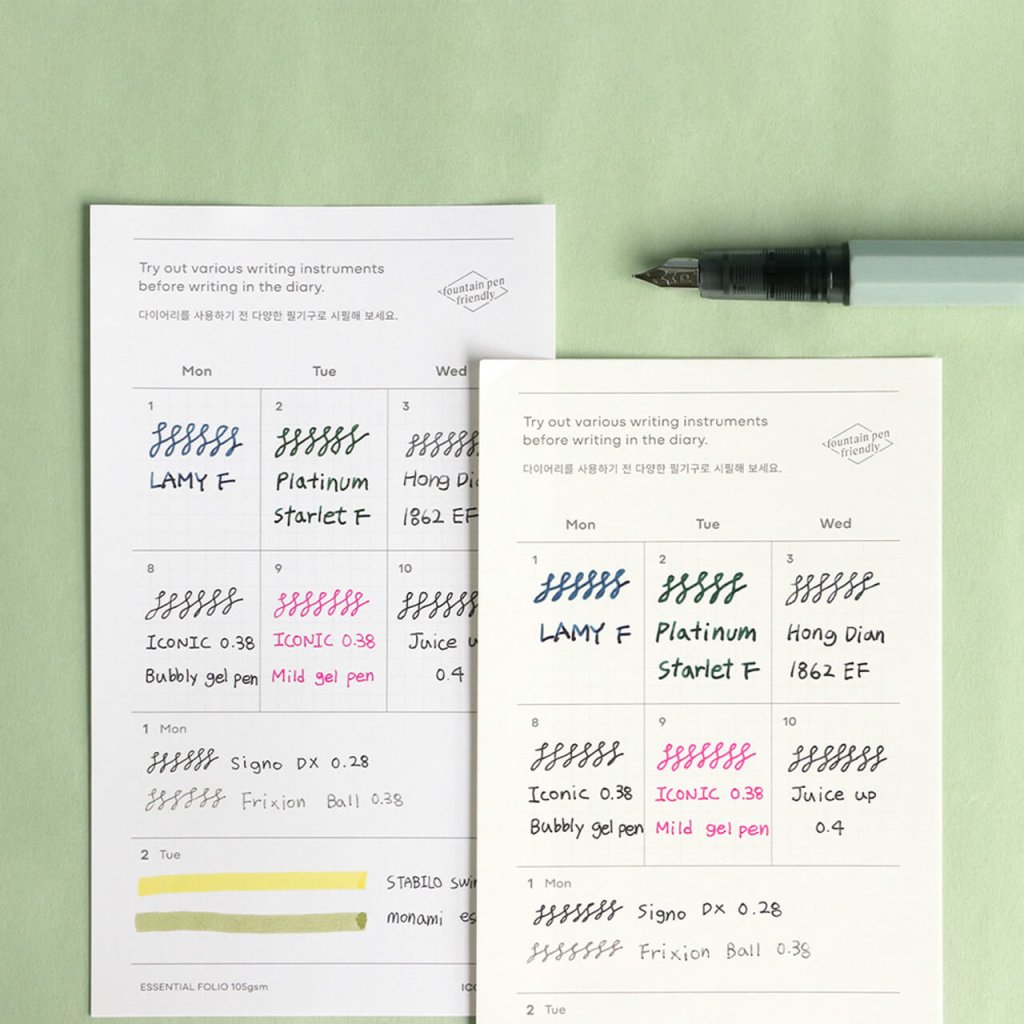 Try out various writing instruments
before writing in the diary.
fountain pen
friendly
다이어리를 사용하기 전 다양한 필기구로 시필해 보세요.
Mon Tue Wed
1 2 3
LAMY F Platinum Hong
Starlet F 1862 EF
8 9 10
ICONIC 0.38 ICONIC 0.38 Juice
Bubbly gel pen Mild gel pen 0.4
1 Mon
Signo DX 0.28
Frixion Ball 0.38
2 Tue
STABILO
monami
ESSENTIAL FOLIO 105gsm
Try out various writing instruments
before writing in the diary.
fountain pen
friendly
다이어리를 사용하기 전 다양한 필기구로 시필해 보세요.
Mon Tue Wed
1 2 3
LAMY F Platinum Hong Dian
Starlet F 1862 EF
8 9 10
Iconic 0.38 ICONIC 0.38 Juice up
Bubbly gel pen Mild gel pen 0.4
1 Mon
Signo DX 0.28
Frixion Ball 0.38
2 Tue